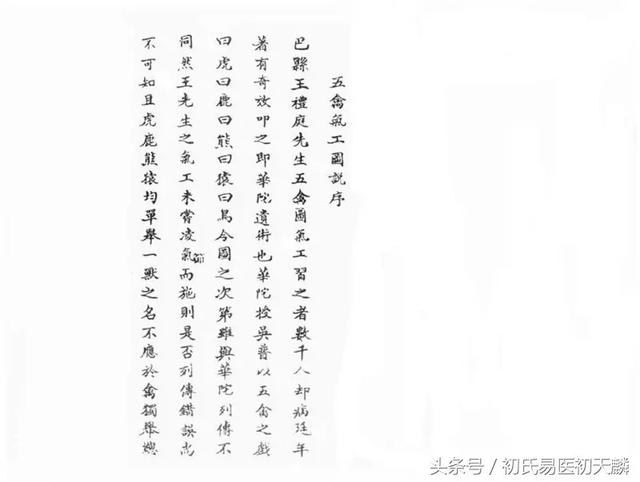 五禽氣工圖說序
巴縣王禮庭先生五禽圖氣工習之者數千人却病延年
著有奇效叩之即華陀遺術也華陀授吳普以五禽之戲
曰虎曰鹿曰熊曰猿曰鳥今圖之次第雖與華陀列傳不
同然王先生之氣工未嘗凌氣節而施則是否列傳錯誤尚
不可知且虎鹿熊猿均單舉一獸之名不應於禽獨舉總
头条号 / 初氏易医初天麟